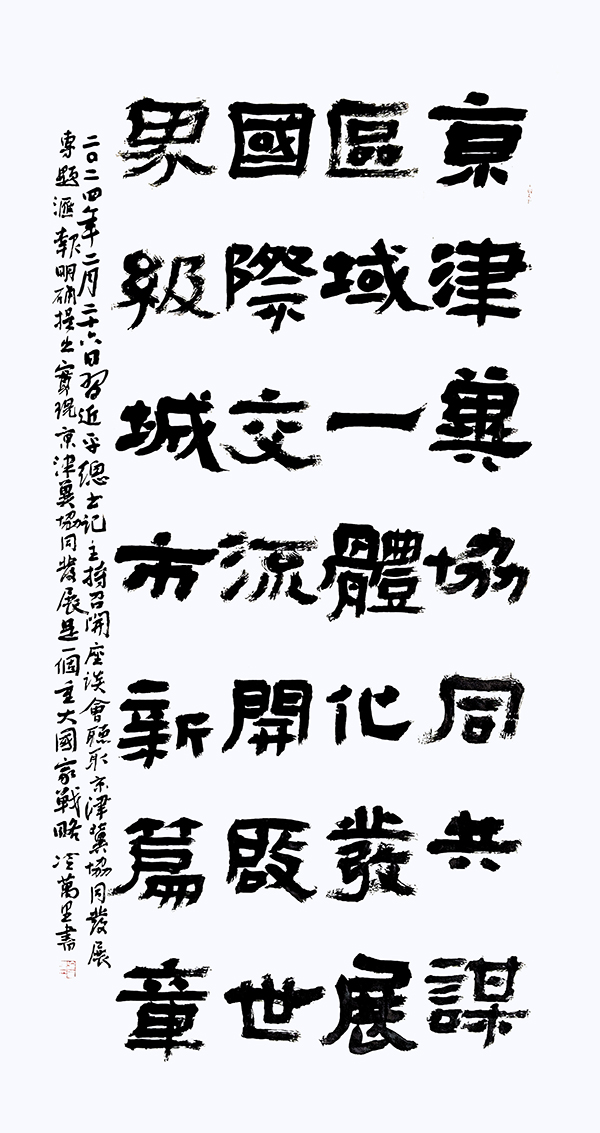 京津冀協同共謀
區域一體化發展
國際交流開啟世
界級城市新篇章
二〇二四年二月二十六日習近平總書記主持召開座談會聽取京津冀協同發展
專題滙報明确提出實現京津冀協同發展是一個重大國家戰略 冷萬里書